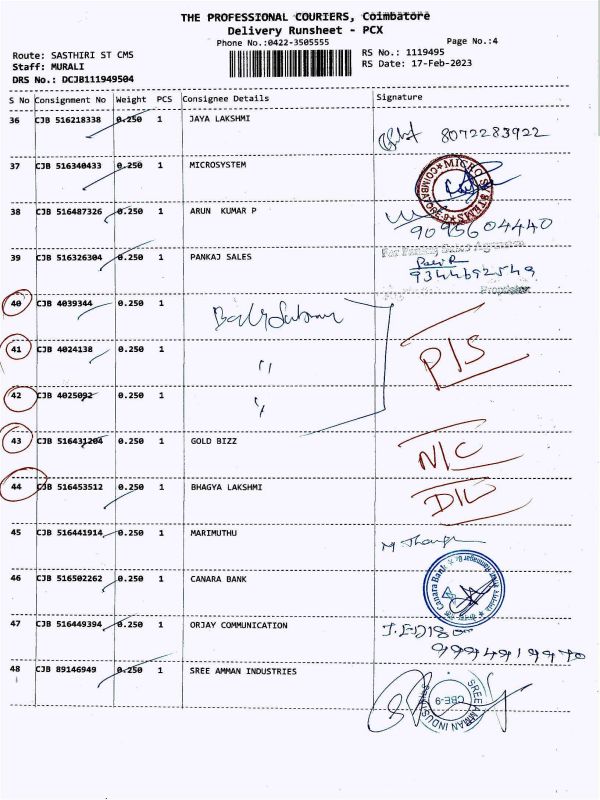 THE PROFESSIONAL COURIERS, Coimbatore
Delivery Runsheet - PCX
Phone No.:0422-3505555
Page No.:4
Route: SASTHIRI ST CMS
RS No.: 1119495
Staff: MURALI
RS Date: 17-Feb-2023
DRS No.: DCJB111949504
S No Consignment No Weight PCS Consignee Details Signature
36 CJB 516218338 0.250 1 JAYA LAKSHMI
8072283922
37 CJB 516340433 0.250 1 MICROSYSTEM
MICRO SYSTEMS COIMBA
38 CJB 516487326 0.250 1 ARUN KUMAR P
9095604440
39 CJB 516326304 0.250 1 PANKAJ SALES
For Pankaj
9344692549
Proprietor
40 CJB 4039344 0.250 1
41 CJB 4024138 0.250 1 "
P/S
42 CJB 4025092 0.250 1 "
43 CJB 516431204 0.250 1 GOLD BIZZ
N/C
44 CJB 516453512 0.250 1 BHAGYA LAKSHMI
D/L
45 CJB 516441914 0.250 1 MARIMUTHU
46 CJB 516502262 0.250 1 CANARA BANK
Canara Bank
47 CJB 516449394 0.250 1 ORJAY COMMUNICATION
J.EDISON
9994919970
48 CJB 89146949 0.250 1 SREE AMMAN INDUSTRIES
SREE AMMAN INDUSTRIES
CBE-9